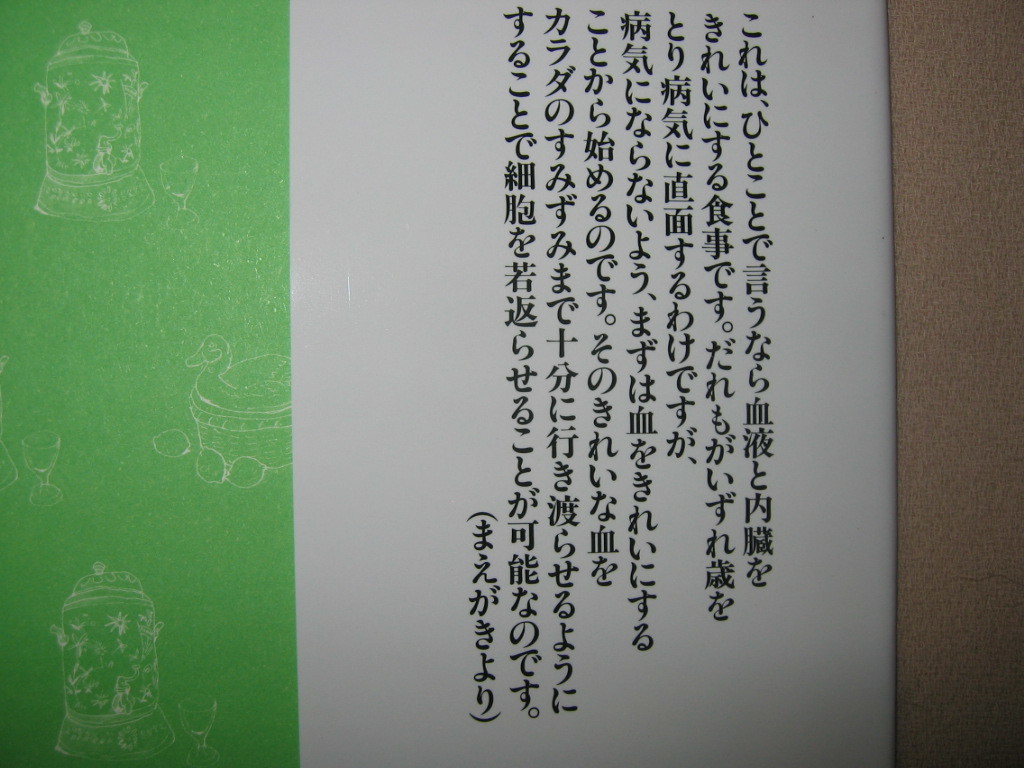 これは、ひとことで言うなら血液と内臓を
きれいにする食事です。だれもがいずれ歳を
とり病気に直面するわけですが、
病気にならないよう、まずは血をきれいにする
ことから始めるのです。そのきれいな血を
カラダのすみずみまで十分に行き渡らせるように
することで細胞を若返らせることが可能なのです。
（まえがきより）